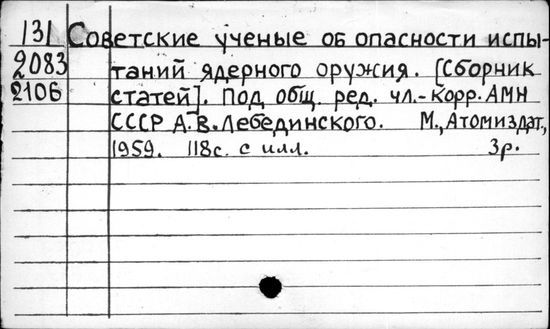 131 Советские ученые об опасности испы-
2083 таний ядерного оружия. [Сборник
2106 статей]. Под общ. ред. чл.-корр. АМН
СССР А. В. Лебединского. М., Атомиздат,
1959. 118с. с илл. 3р.